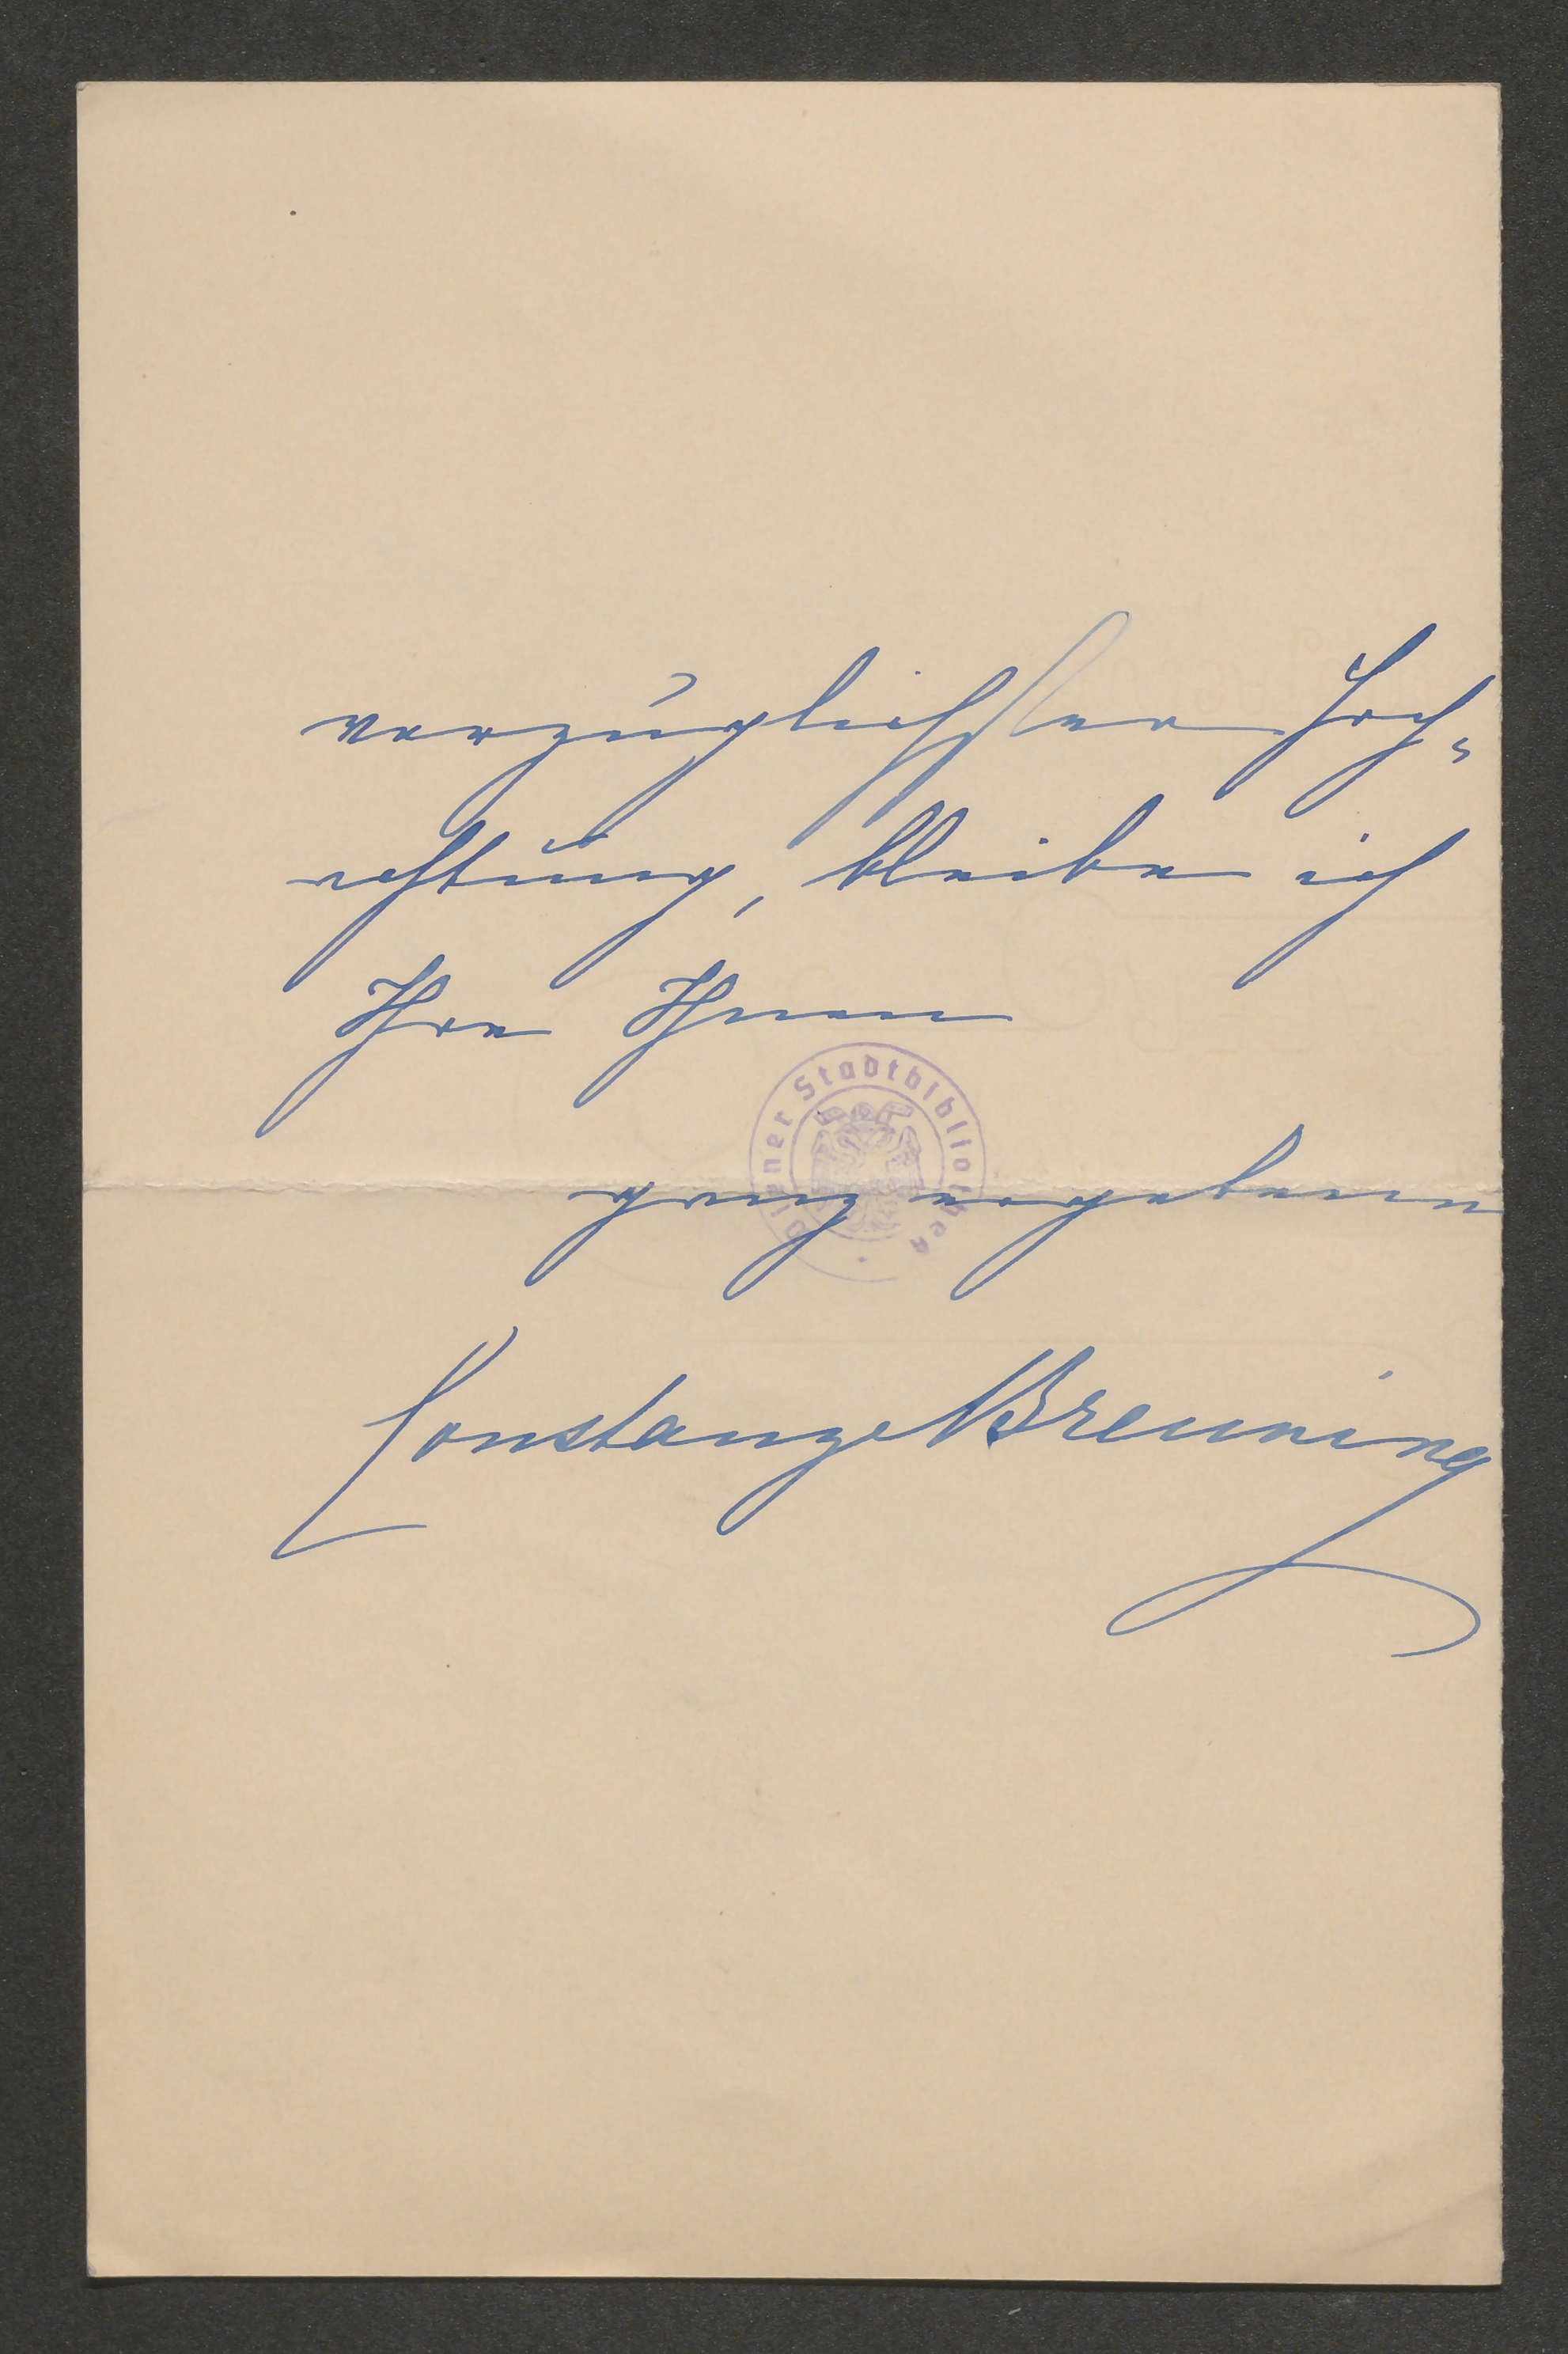 vorzüglichster Hoch-
achtung, bleibe ich
Ihre Ihnen
Wiener Stadtbibliothek
ganz ergebene
Constanze Breuning